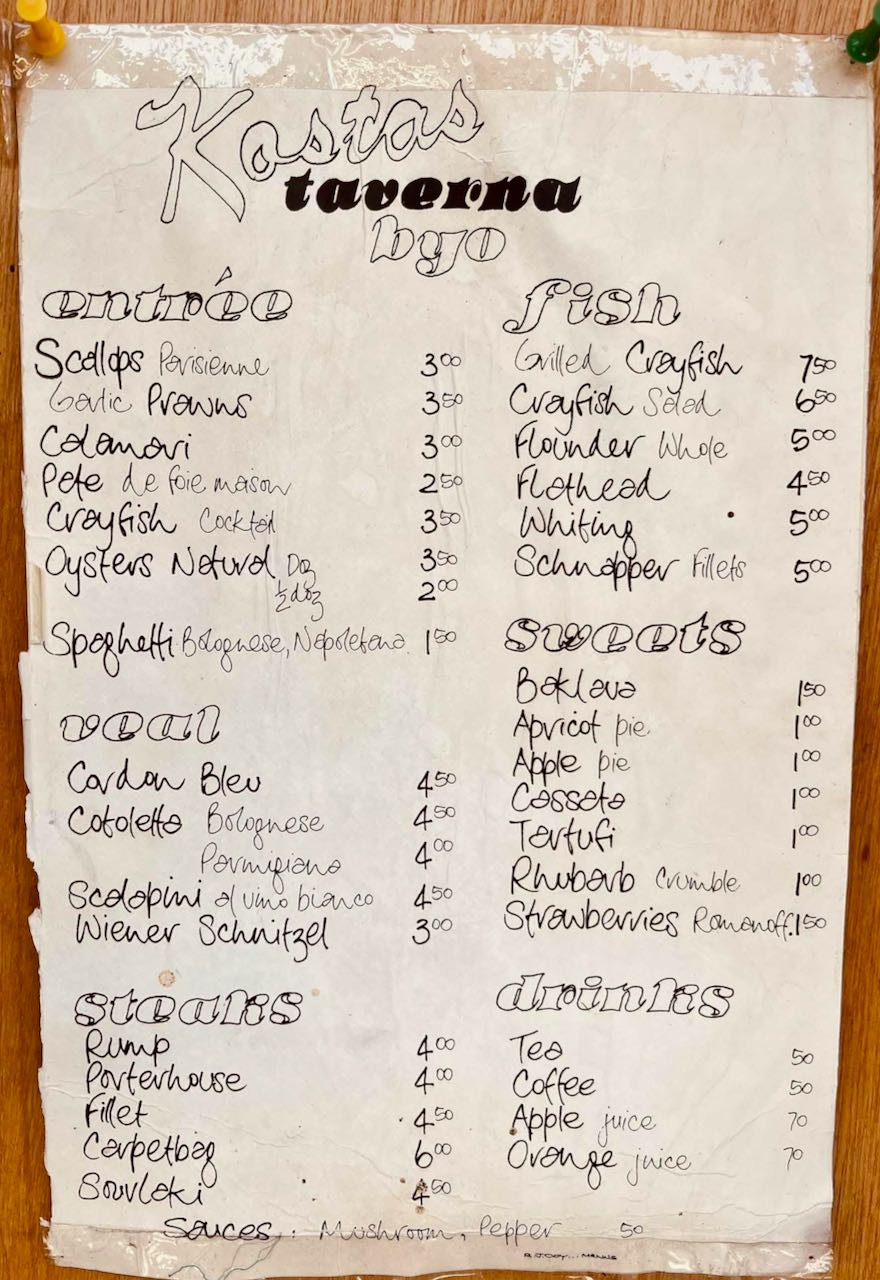 Kostas
taverna
byo
entrée
Scallops Parisienne 3.00
Garlic Prawns 3.50
Calamari 3.00
Pate de foie maison 2.50
Crayfish Cocktail 3.50
Oysters Natural Doz 3.50
½ doz 2.00
Spaghetti Bolognese, Napoletana. 1.50
veal
Cordon Bleu 4.50
Cotoletta Bolognese 4.50
Parmigiana 4.00
Scalopini al vino bianco 4.50
Wiener Schnitzel 3.00
steaks
Rump 4.00
Porterhouse 4.00
Fillet 4.50
Carpetbag 6.00
Souvlaki 4.50
fish
Grilled Crayfish 7.50
Crayfish Salad 6.50
Flounder Whole 5.00
Flathead 4.50
Whiting 5.00
Schnapper Fillets 5.00
sweets
Baklava 1.50
Apricot pie 1.00
Apple pie 1.00
Cassata 1.00
Tartufi 1.00
Rhubarb Crumble 1.00
Strawberries Romanoff. 1.50
drinks
Tea 50
Coffee 50
Apple juice 70
Orange juice 70
Sauces : Mushroom, Pepper 50